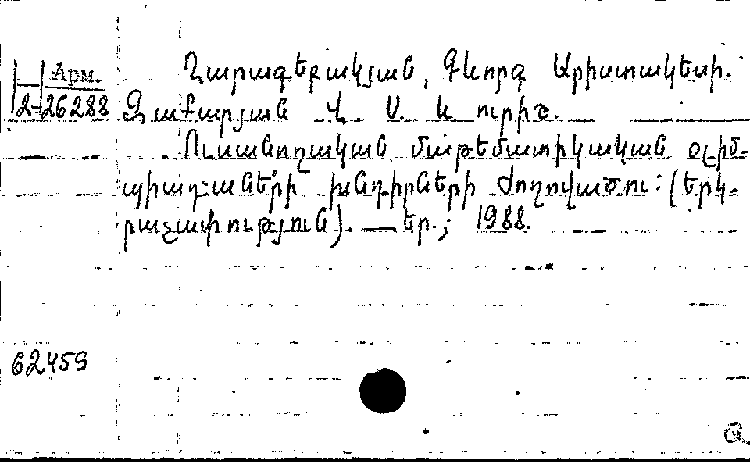 Арм.
2-26288
Ղարագեբակյան, Գևորգ Արիստակեսի.
Զաքարյան Վ. Ս. և ուրիշ.
Ուսանողական մաթեմատիկական օլիմ-
պիադաների խնդիրների ժողովածու: (Երկ-
րաչափություն). — Եր.; 1988.
62459